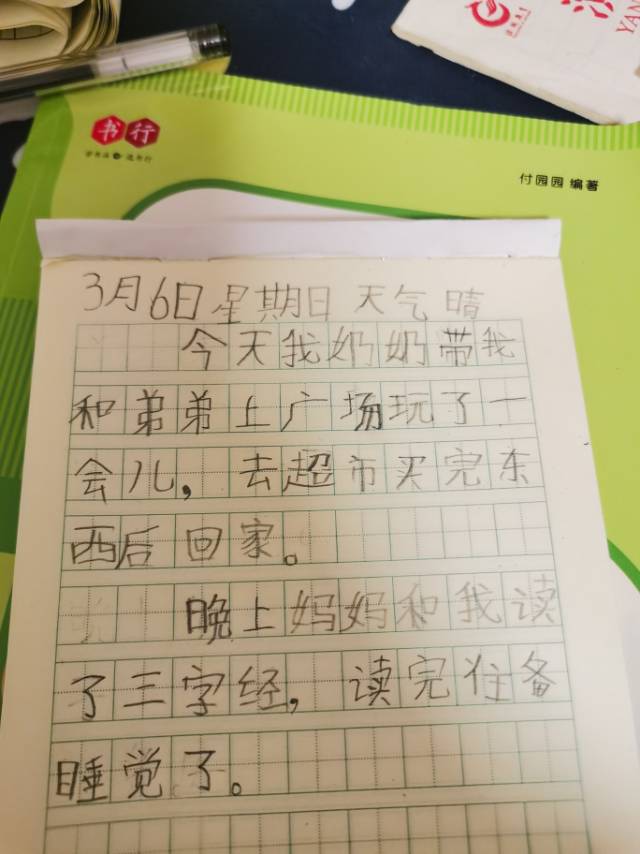 书行
付园园 编著
3月6日星期日 天气 晴
今天我奶奶带我
和弟弟上广场玩了一
会儿，去超市买完东
西后回家。
晚上妈妈和我读
了三字经，读完准备
睡觉了。